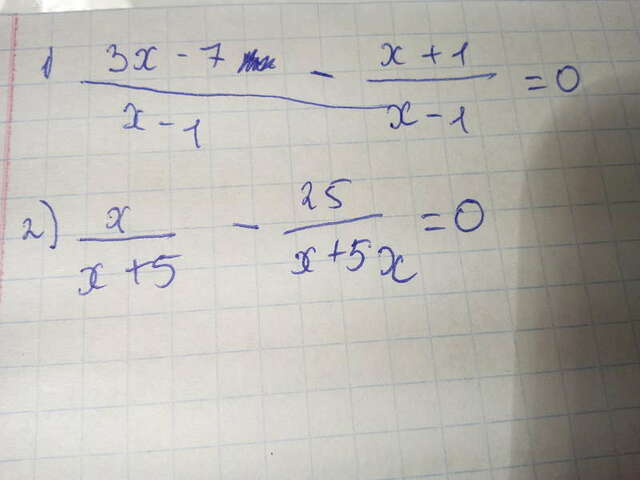 1) (3x - 7)/(x - 1) - (x + 1)/(x - 1) = 0
2) x/(x + 5) - 25/(x + 5x) = 0